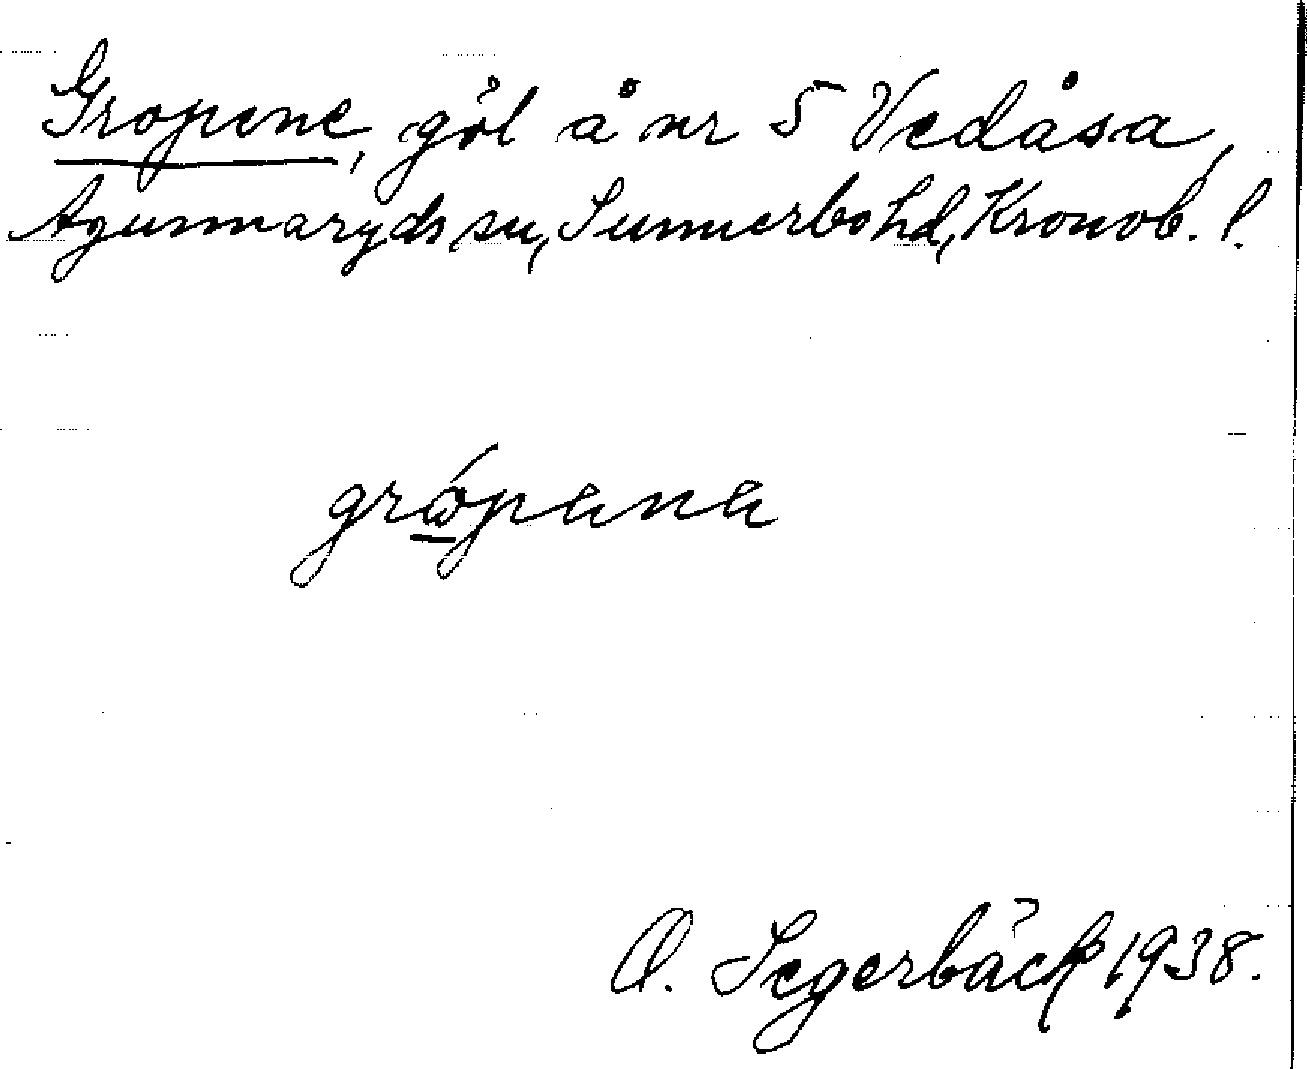 Gropene, göl å nr 5 Vedåsa,
Agunnaryds sn, Sunnerbo hd, Kronob. l.
O. Segerbäck 1938.